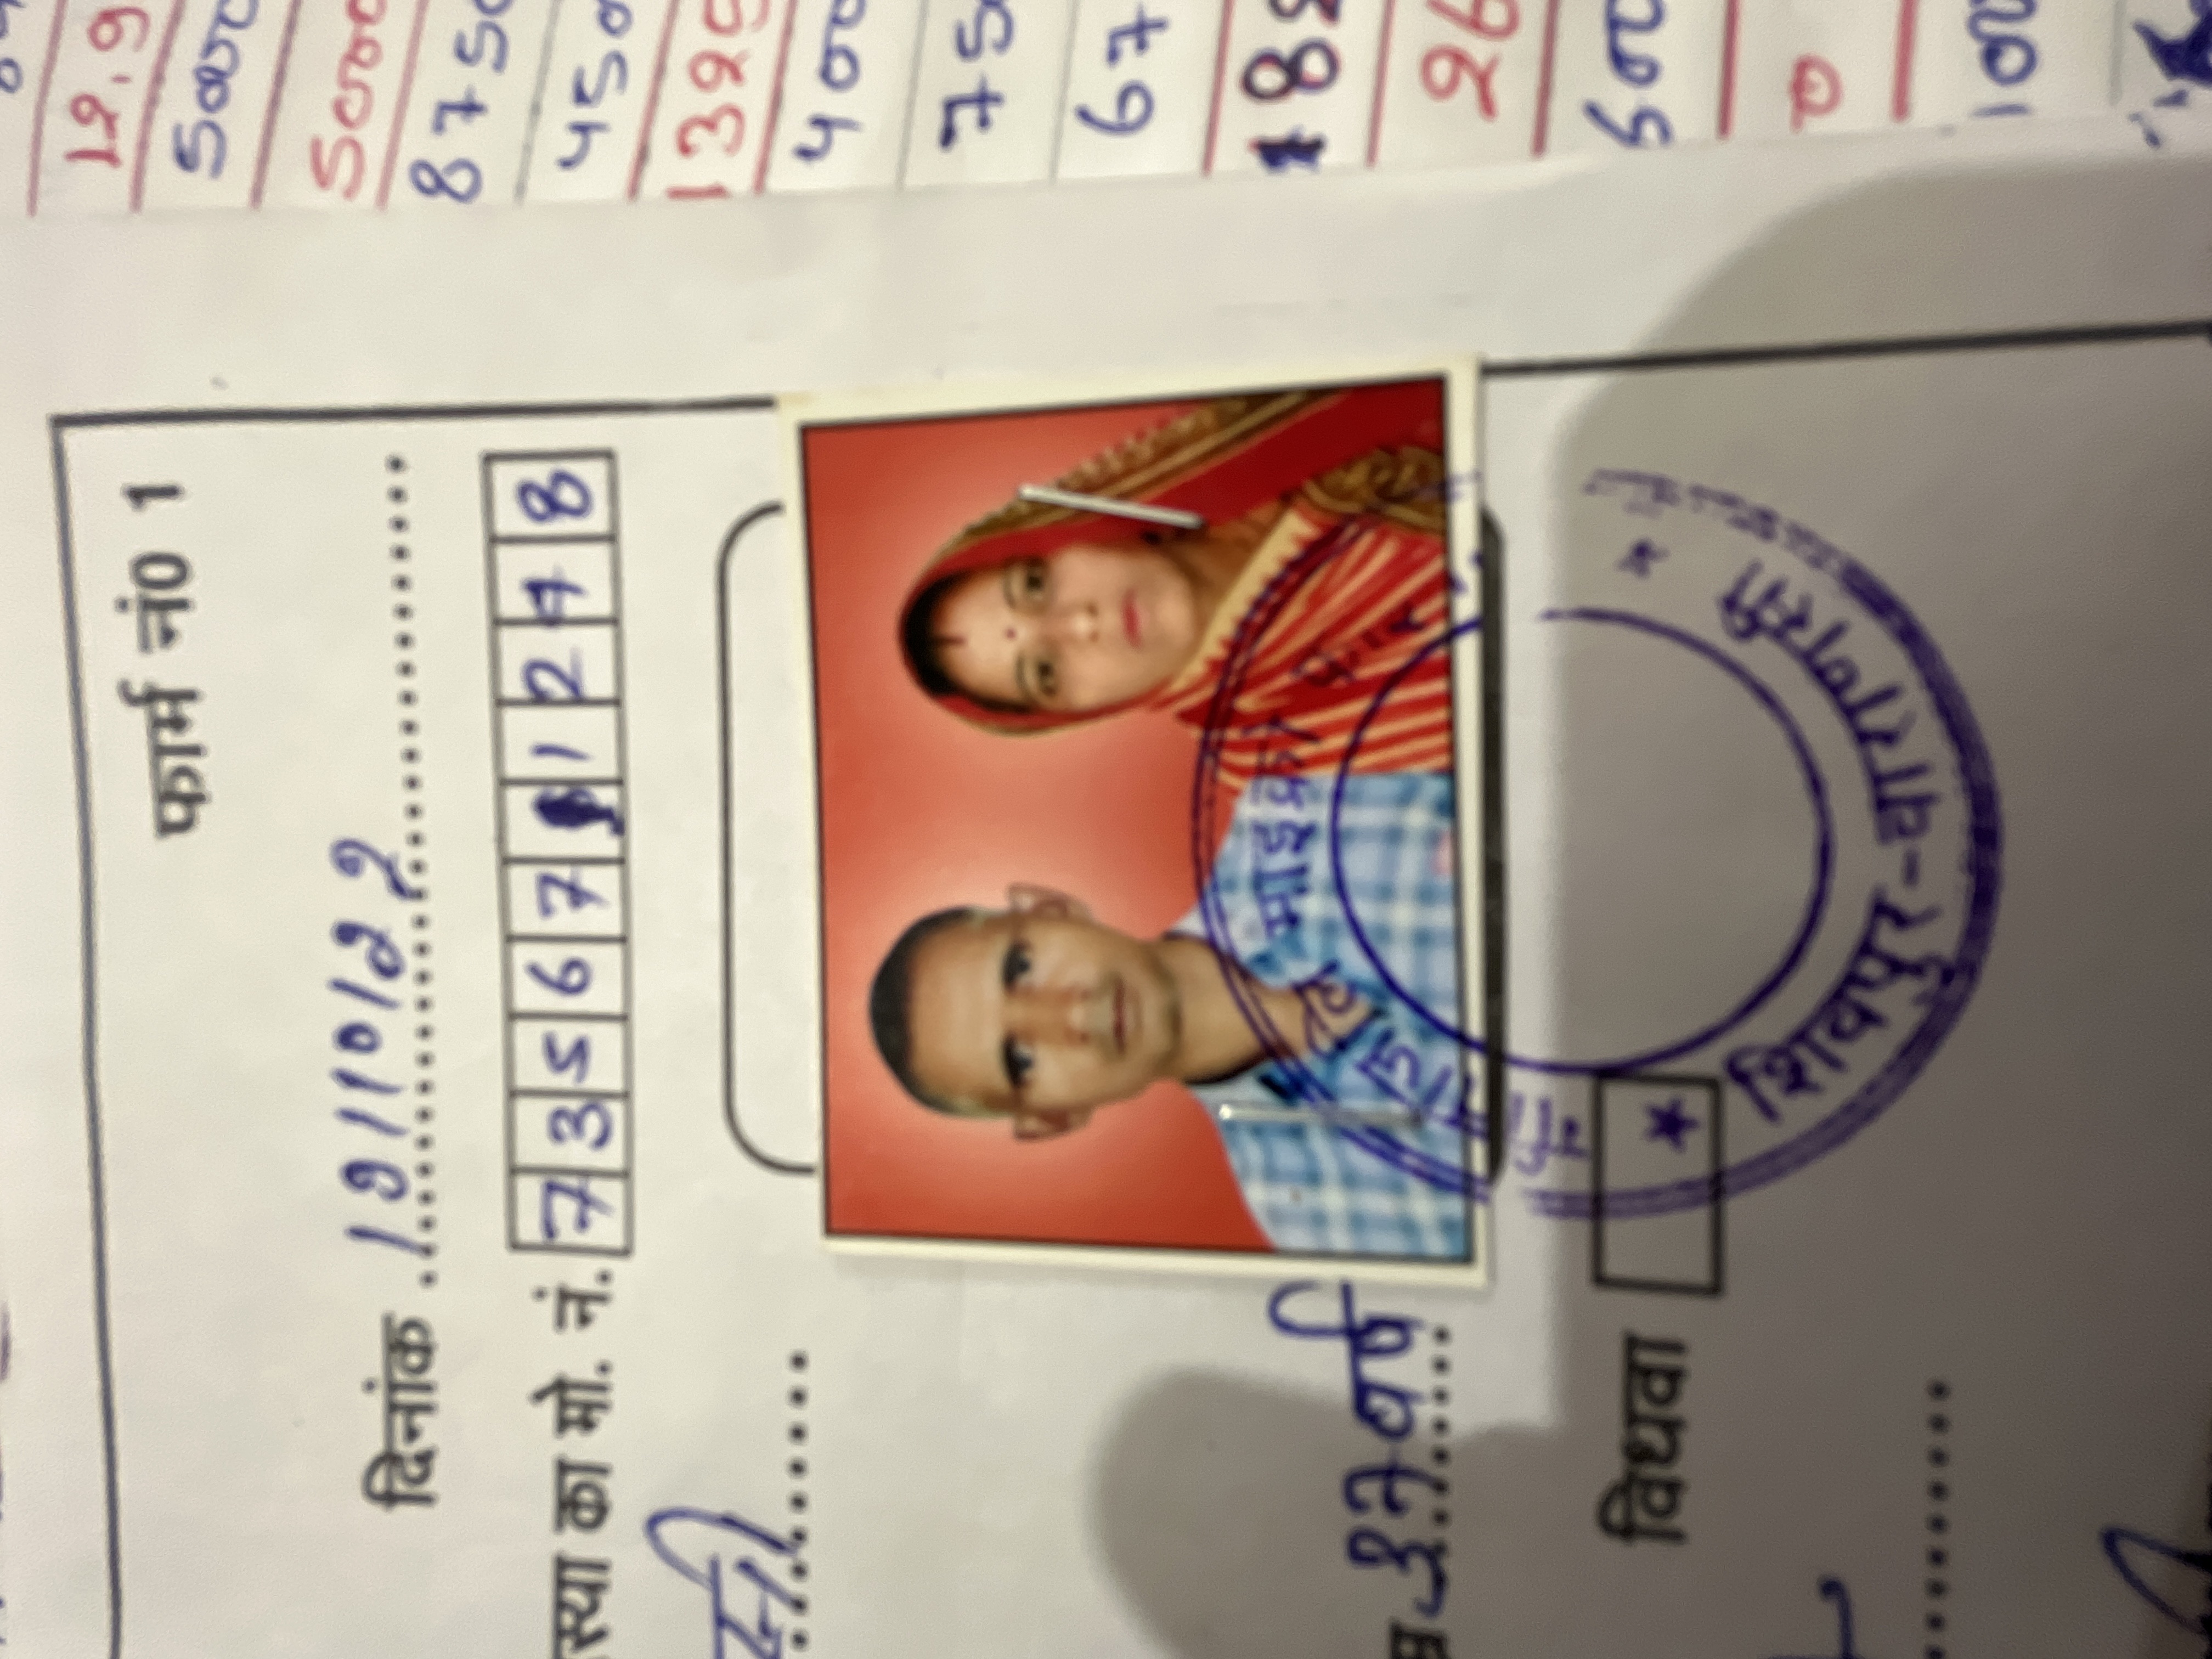 फार्म नं0 1
दिनांक 19/10/22
स्या का मो. नं. 7 3 5 6 7 1 2 7 8
37 वर्ष
माइक्रो
विधवा
शिवपुर-वाराणसी
12.9
5000
5000
875
450
1325
400
75
67
182
26
500
0
100